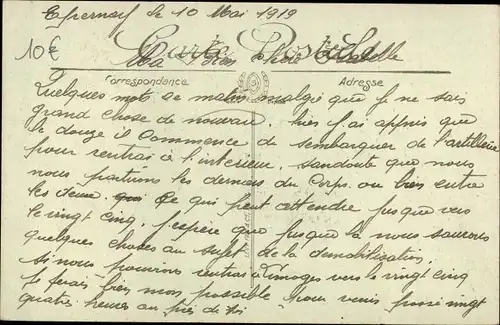 Epernay le 10 Mai 1919
10€
Carte Postale
Ma bien chère
Correspondance
Adresse
Quelques mots ce matin malgré que je ne sais
grand chose de nouveau. hier j'ai appris que
le douze il commence de s'embarquer de l'artillerie
pour rentrer à l'interieur, sandoute que nous
nous partirons les derniers du Corps. ou bien entre
les deux. Ce qui peut attendre jusque vers
le vingt cinq. J'espère que jusque là nous saurons
quelques choses au sujet de la démobilisation.
si nous pouvions rentrer à Limoges vers le vingt cinq
je ferais bien mon possible pour venir passé vingt
quatre heures au près de toi